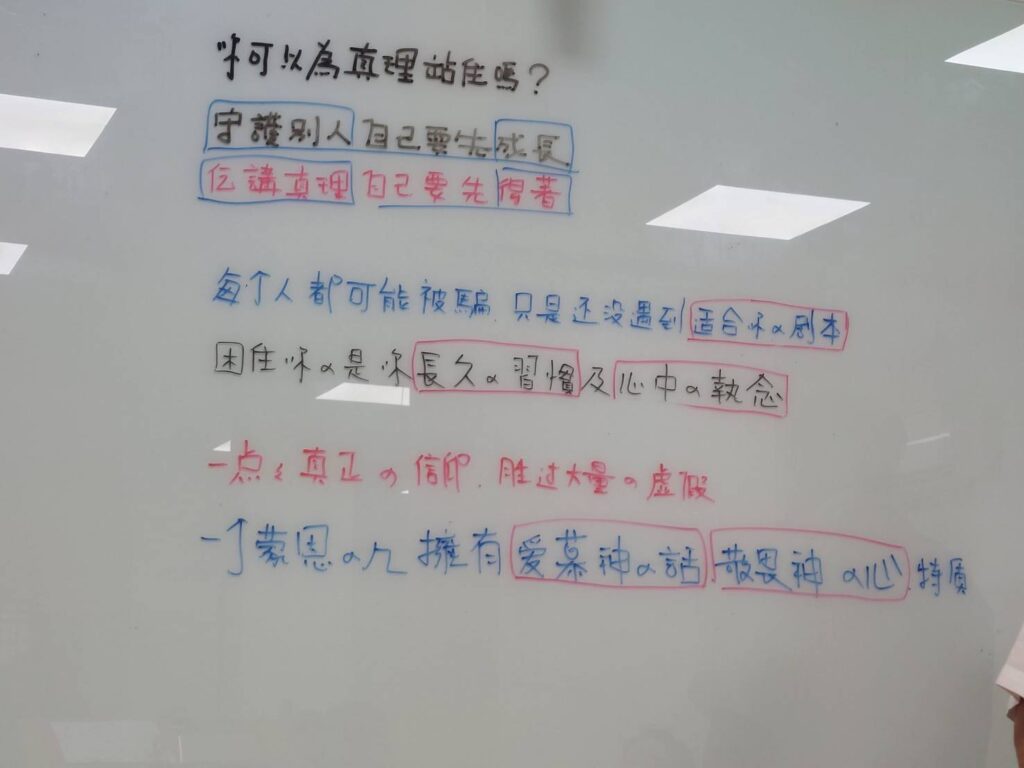 你可以為真理站住嗎？
守護別人 自己要先成長
伝講真理 自己要先得著
每个人都可能被騙 只是还没遇到适合你の剧本
困住你の是你長久の習慣及心中の執念
一点々真正の信仰. 胜过大量の虚假
一个蒙恩の人 擁有爱慕神の話. 敬畏神の心. 特质